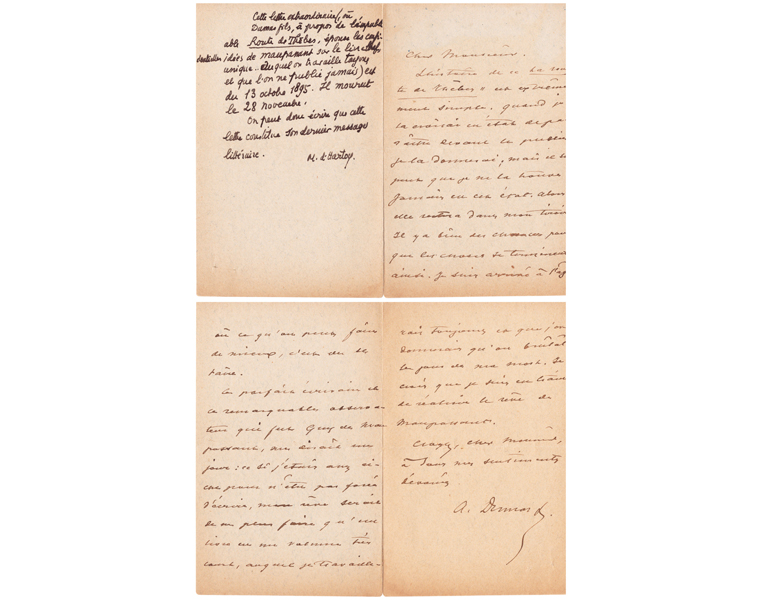 Cette lettre extraordinaire, où
Dumas fils, à propos de l'impubli-
able Route de Thèbes, épouse les cu-
idées de maupassant sur le livre
unique auquel on travaille toujours
et que l'on ne publie jamais) est
du 13 octobre 1895. Il mourut
le 28 novembre.
On peut donc écrire que cette
lettre constitue son dernier message
littéraire.
Cher Monsieur.
L'histoire de ce La rou
te de Thèbes est extrême
ment simple. Quand je
la croirai en état de pa
raître devant le public
je la donnerai, mais il se
peut que je ne la trouve
jamais en cet état. Alors
elle restera dans mon tiroir
Il y a bien des chances pour
que les choses se terminent
ainsi. Je suis arrivé à l'âge
où ce qu'on peut faire
de mieux, c'est de se
taire.
Ce parfait écrivain et
ce remarquable observa
teur qui fut Guy de Mau
passant, me disait un
jour: si j'étais assez ri-
che pour n'être pas forcé
d'écrire, mon rêve serait
de ne plus faire qu'un
livre en un volume très
court, auquel je travaille-
rais toujours et que j'or
donnerais qu'on brûlât
le jour de ma mort. Je
crois que je suis en train
de réaliser le rêve de
Maupassant.
Croyez, cher Monsieur,
à tous mes sentiments
dévoués
A. Dumas f.